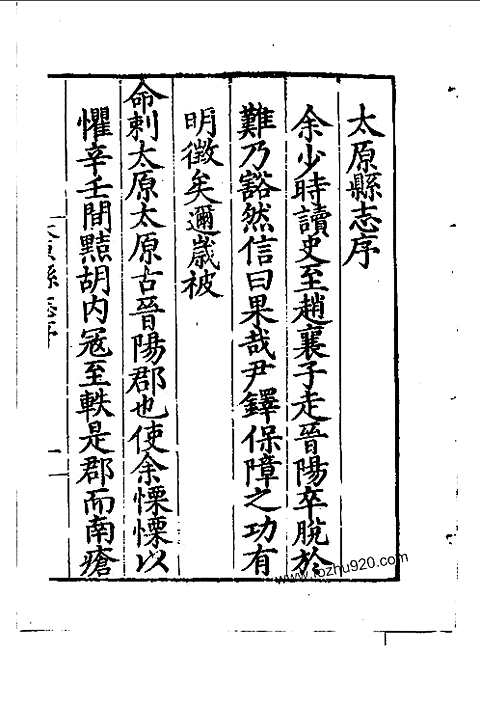 太原縣志序
余少時讀史至趙襄子走晉陽卒脫於
難乃豁然信曰果哉尹鐸保障之功有
明徵矣邇歲被
命刺太原太原古晉陽郡也使余慄慄以
懼辛壬間黠胡内寇至軼是郡而南瘡
太原縣志序
一
www.fozhu920.com